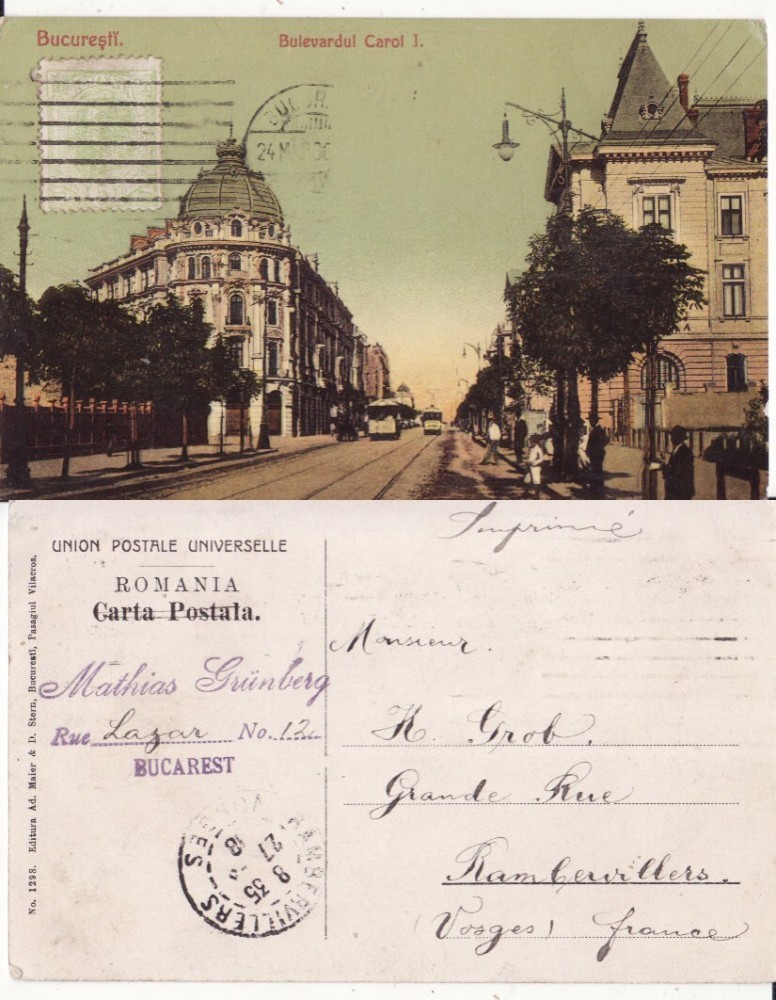 Bucureștĭ.
Bulevardul Carol I.
BUCUR
24 M
UNION POSTALE UNIVERSELLE
ROMANIA
Carta Postala.
Imprimé
Mathias Grünberg
Rue Lazar No. 12
BUCAREST
Monsieur.
K. Grob.
Grande Rue
Rambervillers.
(Vosges) France
RAMBERVILLERS
VOSGES
8 35
27
No. 1298. Editura Ad. Maier & D. Stern, Bucuresti, Pasagiul Vilacros.